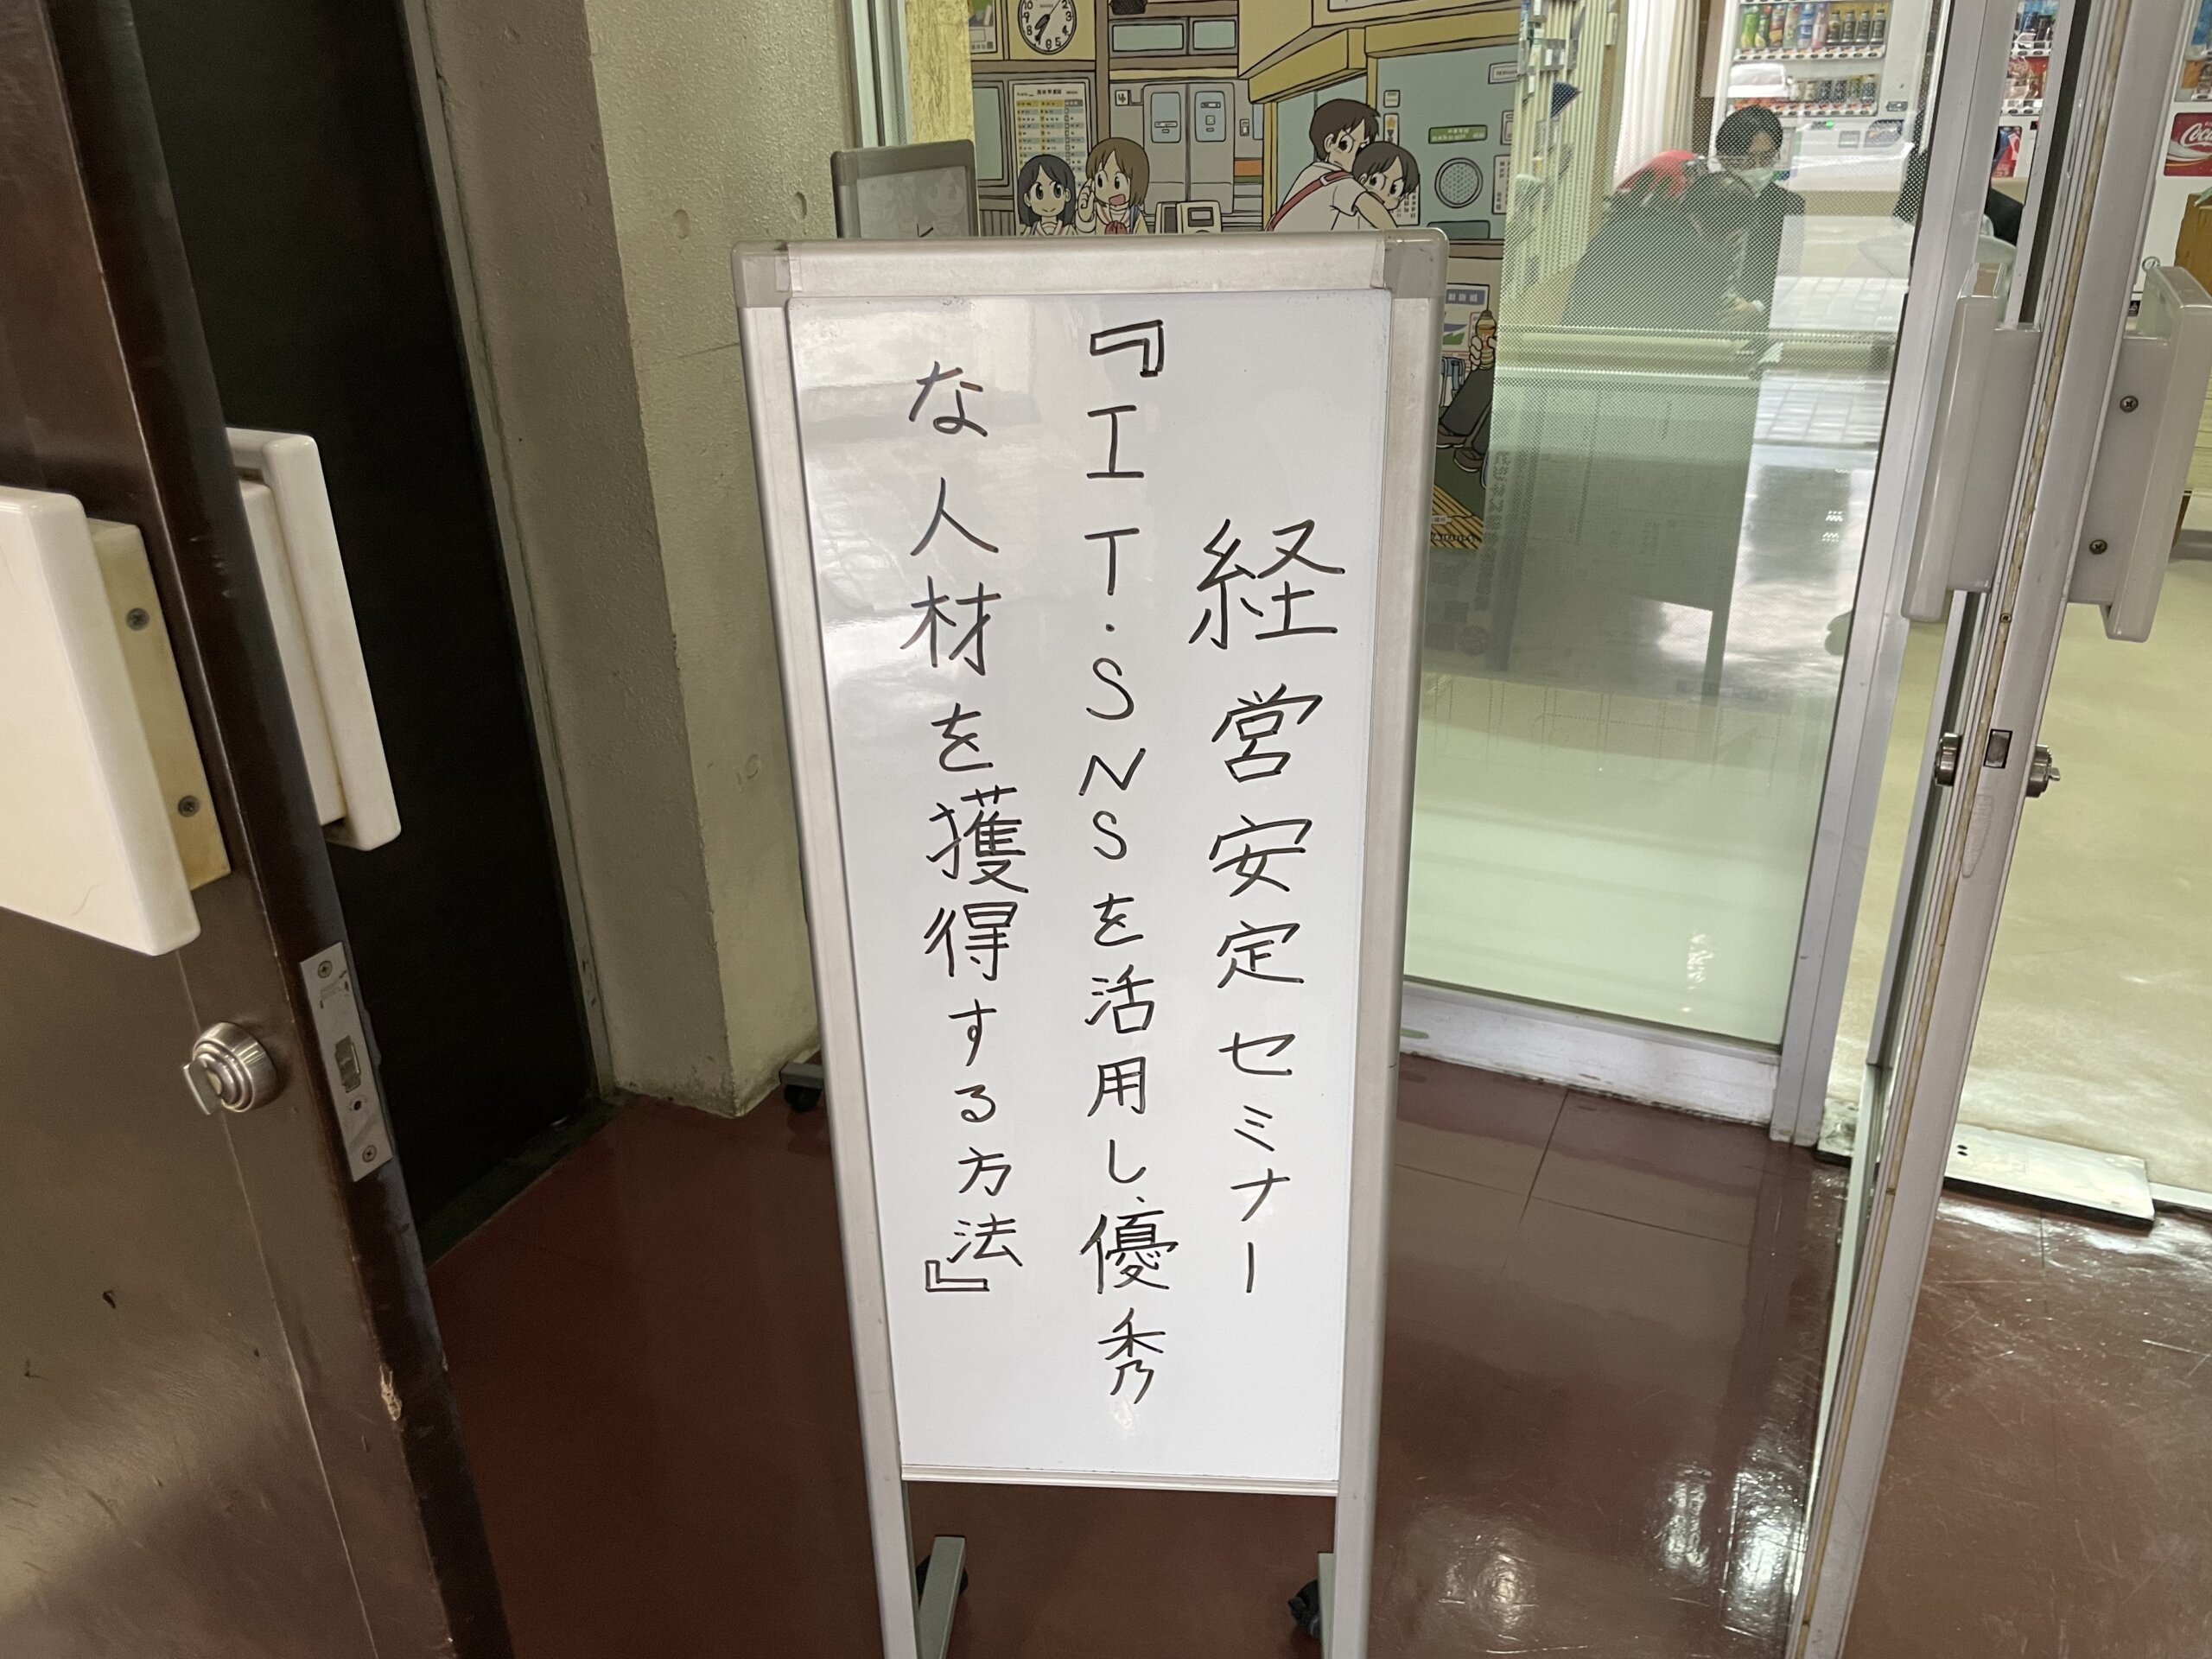 経営安定セミナー
『IT・SNSを活用し、優秀
な人材を獲得する方法』